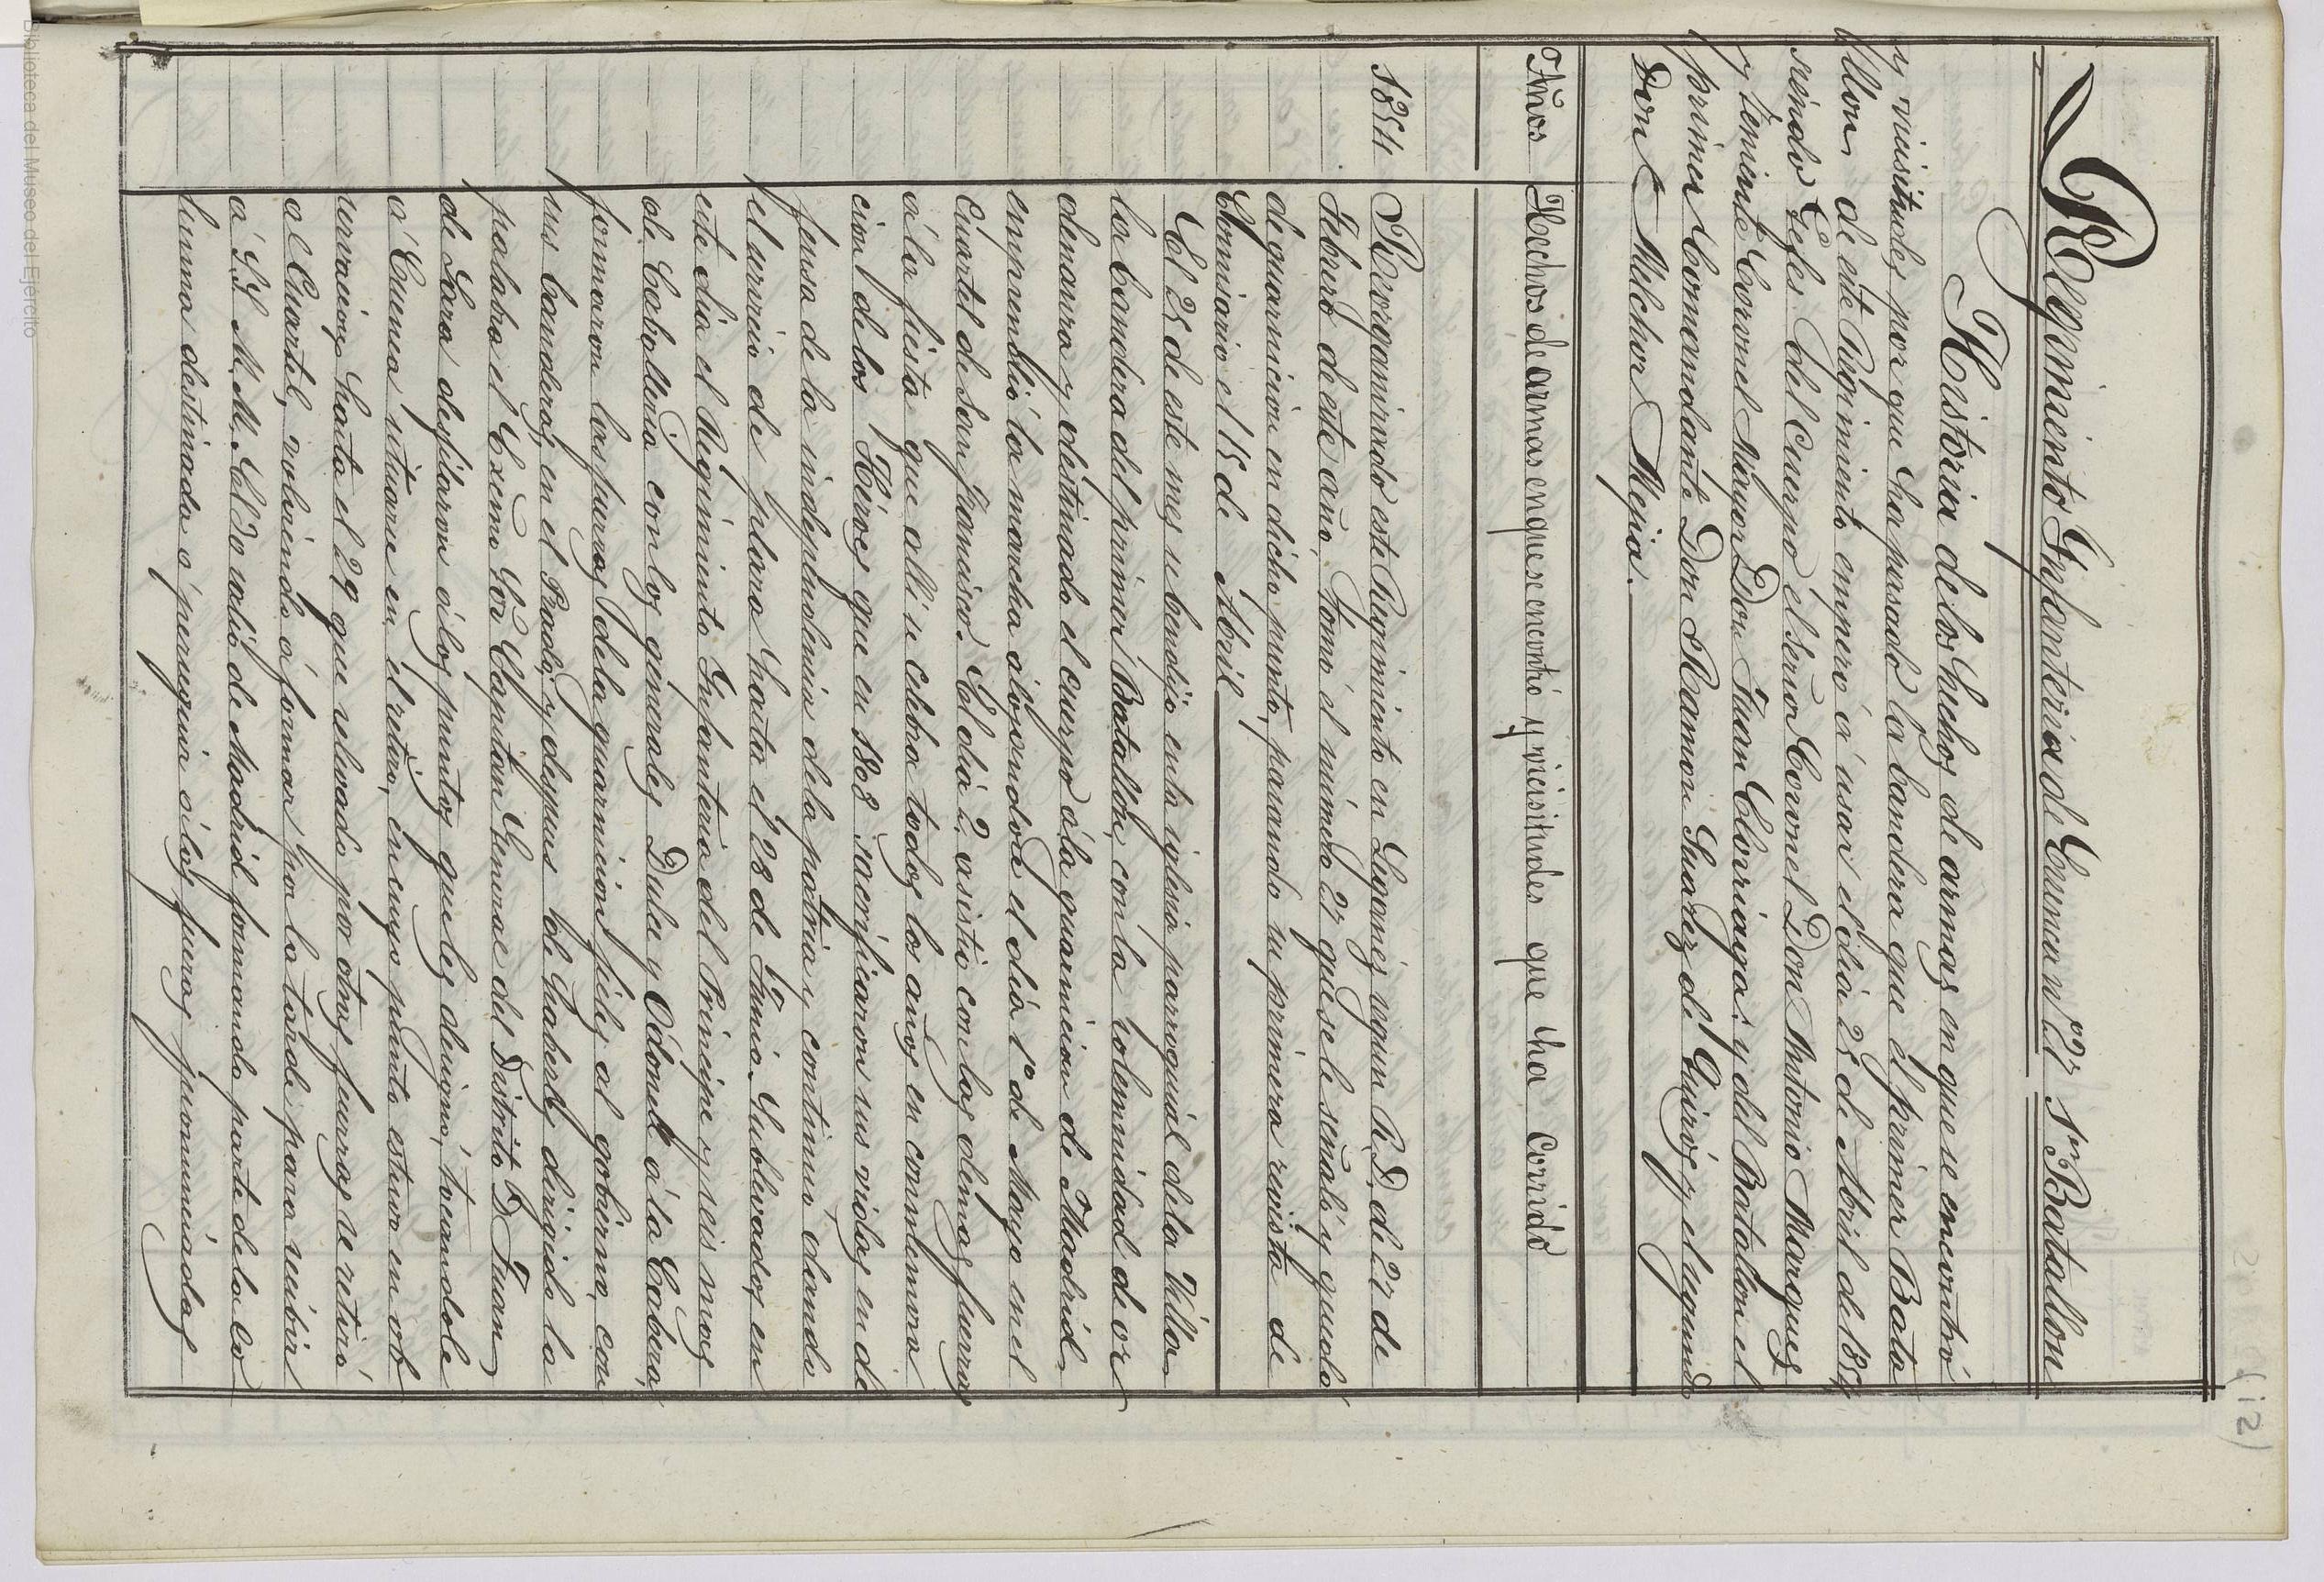 (12)
Regimiento Infanteria de Cuenca nº 27 1er Batallon
Historia de los hechos de armas en que se encontró
y vicisitudes por que ha pasado la bandera que el primer Bata
llon de este Regimiento empezó á usar el dia 25 de Abril de 1854
siendo Gefes del Cuerpo el Señor Coronel Don Antonio Marques
y teniente Coronel Mayor Don Juan Elorriaga: y del Batallon el
primer Comandante Don Ramon Suarez de Quirós y el segundo
Don Melchor Mejia.
Años Hechos de armas en que se encontró y vicisitudes que ha corrido
1854 Reorganizado este Regimiento en Leganés segun R. D. de 27 de
Febrero de este año, tomó el número 27 que se le señaló y quedó
de guarnicion en dicho punto, pasando su primera revista de
Comisario el 15 de Abril
El 25 de este mes se bendijo en la iglesia parroquial de la Villa
la bandera del primer Batallon, con la solemnidad de or
denanza y destinado el cuerpo á la guarnicion de Madrid
emprendió la marcha alojandose el dia 1º de Mayo en el
Cuartel de San Francisco. El dia 2 asistió con las demas fuerzas
á la fiesta que alli se celebra todos los años en conmemora
cion de los Héroes que en 1808 sacrificaron sus vidas en de
fensa de la independencia de la patria y continuó dando
el servicio de plaza hasta el 28 de Junio. Sublevados en
este dia el Regimiento Infanteria del Principe y seis mas
de Caballeria con los generales Dulce y Odonell á la Cabeza,
formaron las fuerzas de la guarnicion fieles al gobierno, con
sus banderas, en el Prado; y despues de haberles dirigido la
palabra el Excmo Sor Capitan General del Distrito D. Juan
de Lara desfilaron á los puntos que les designó, tocandole
á Cuenca situarse en el retiro, en cuyo punto estuvo en ob
servacion hasta el 29 que relevado por otras fuerzas se retiró
al Cuartel, volviendo á formar por la tarde para recibir
á S.S. M.M. El 30 salió de Madrid formando parte de la co
lumna destinada á perseguir á las fuerzas pronunciadas
Biblioteca del Museo del Ejército